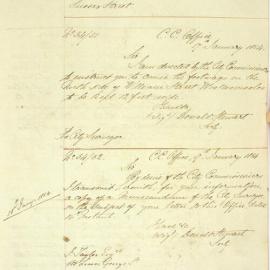 Sussex Street
No 54/51 C.C. Office
9th January 1854
Sir
I am directed by the City Commissioners
to instruct you to cause the footways on the
North side of William Street Woolloomooloo
to be kept 12 feet wide
I have &c
(Sigd) Donald Stewart
Secy
The City Surveyor
No 54/52 C.C. Office 9th January 1854
Sir
By desire of the City Commissioners
I transmit herewith for your information
a copy of a Memorandum of the City Surveyor
on the subject of your letter to this Office dated
I have &c
(Sigd) Donald Stewart
Secy
J. Taylor Esqr